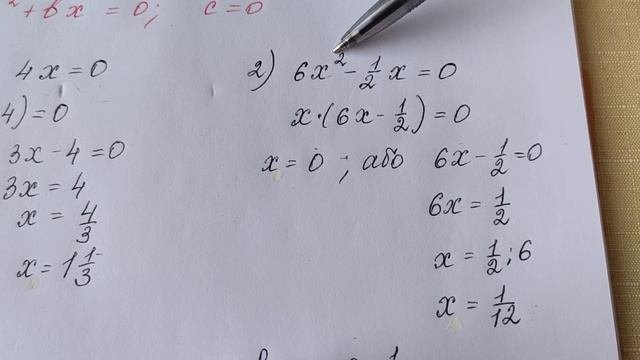 ² + bx = 0; c = 0
4x = 0
4) = 0
3x - 4 = 0
3x = 4
x = 4/3
x = 1 1/3
2) 6x² - 1/2 x = 0
x·(6x - 1/2) = 0
x = 0 ; або 6x - 1/2 = 0
6x = 1/2
x = 1/2 : 6
x = 1/12